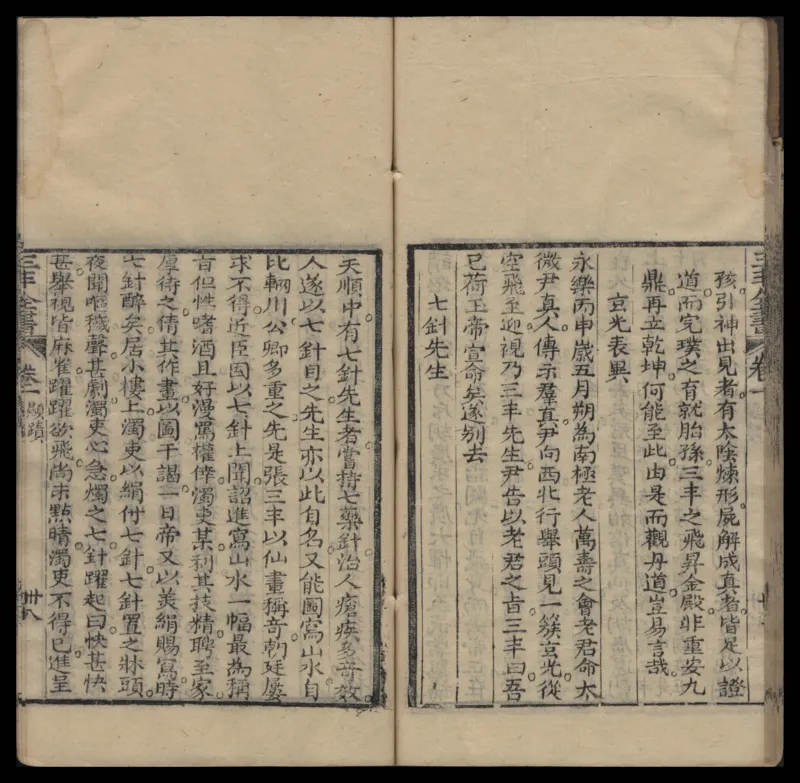 三丰全書 卷
孩引神出見者有太陰煉形屍解成真者皆是以證
道而完璞之有就胎孫三丰之飛昇金殿非重安九
鼎再立乾坤何能至此由是而觀丹道豈易言哉
玄光表異
永樂丙申歲五月朔為南極老人萬壽之會老君命太
微尹真人傳示羣真尹向西北行舉頭見一簇玄光從
空飛至迎視乃三丰先生尹告以老君之旨三丰曰吾
已荷玉帝宣命矣遂別去
七針先生
天順中有七針先生者嘗持七藥針治人瘡疾多奇效
人遂以七針目之先生亦以此自名又能圖寫山水自
比輞川公卿多重之先是張三丰以仙畫稱奇朝廷屢
求不得近臣因以七針上聞詔進寫山水一幅最為稱
旨但性嗜酒且好漫罵權倖濁吏某利其技精聘至家
厚待之倩其作畫以圖干謁一日帝又以美絹賜寫時
七針醉矣居小樓上濁吏以絹付七針七針置之牀頭
夜聞嘔穢聲甚劇濁吏心急燭之七針躍起曰快甚快
甚舉視皆麻雀躍躍欲飛尚未點睛濁吏不得已進呈
三丰全書 卷一 顯蹟 卅八